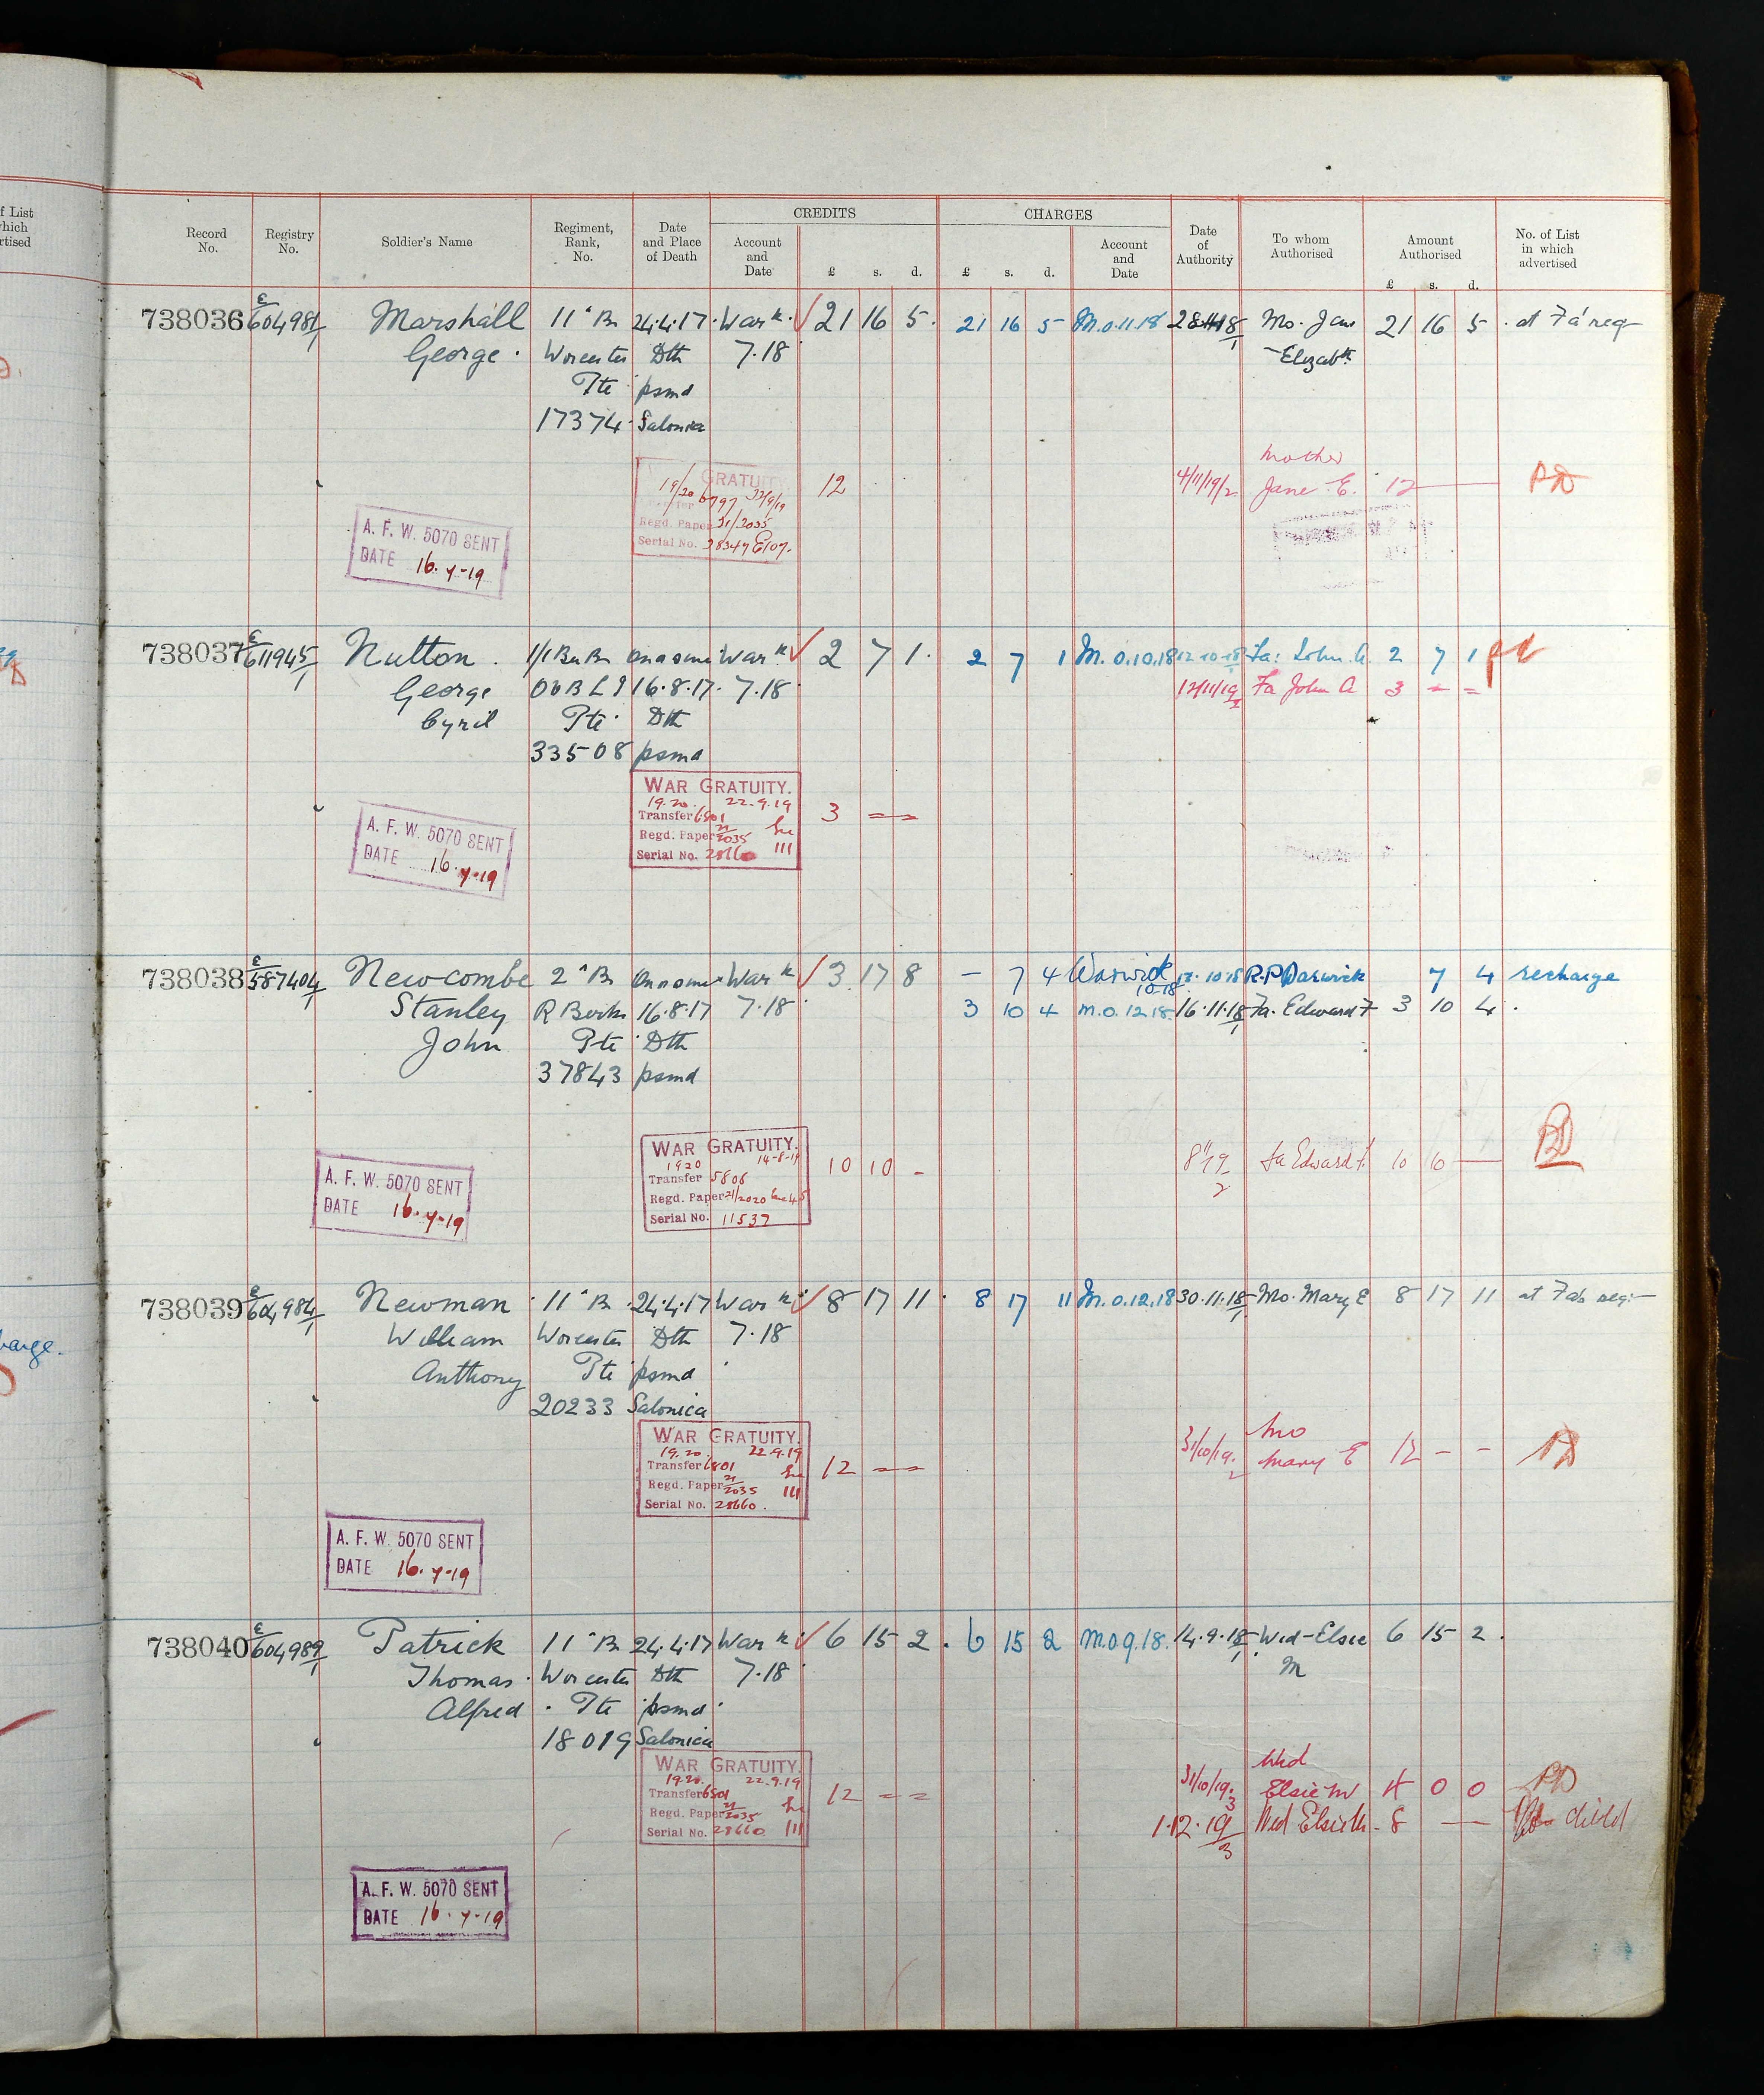 f List
which
rtised
Record No.
Registry No.
Soldier's Name
Regiment, Rank, No.
Date and Place of Death
CREDITS
Account and Date
£ s. d.
CHARGES
£ s. d.
Account and Date
Date of Authority
To whom Authorised
Amount Authorised
£ s. d.
No. of List in which advertised
738036 E/604981/1 Marshall 11th Bn 24.4.17 War k. 21 16 5. 21 16 5 M.O.11.18 Mo. Jane 21 16 5 at Fa' req
George. Worcester Dth 7.18 Elizabth
Pte psmd
17374 Salonica
GRATUITY
19/20 22/9/19
Regd. Paper 21/2035
Serial No.
12
4/11/19/2 Mother Jane E. 12 — PD
A. F. W. 5070 SENT
DATE 16.7-19
738037 E/611945/1 Nutton. 1/1 Bu Bn On or since War k 2 7 1. 2 7 1 M.O.10.18 12.10.18 Fa: John A. 2 7 1
George O & B L I 16.8.17. 7.18 12/11/19/2 Fa John A 3 - =
Cyril Pte Dth
33508 psmd
WAR GRATUITY.
19.20. 22.9.19
Transfer 6801
Regd. Paper 21/2035
Serial No. 28660 111
3 — —
A. F. W. 5070 SENT
DATE 16.7-19
738038 E/587404/1 Newcombe 2nd Bn On or since War k 3 17 8 — 7 4 Warwick 10.18 12.10.18 R.P Warwick 7 4 recharge
Stanley R Berks 16.8.17 7.18 3 10 4 M.O.12.18. 16.11.18/1 Fa. Edward F 3 10 4.
John Pte Dth
37843 psmd
WAR GRATUITY.
1920 14-8-19
Transfer 5806
Regd. Paper 21/2020
Serial No. 11537
10 10 -
Fa Edward F. 10 10 — PD
A. F. W. 5070 SENT
DATE 16.7-19
738039 E/604984/1 Newman 11th Bn 24.4.17 War k 8 17 11. 8 17 11 M.O.12.18 30.11.18/1 Mo. Mary E 8 17 11 at Fa's req:—
William Worcester Dth 7.18
Anthony Pte psmd
20233 Salonica
WAR GRATUITY.
19.20. 22.9.19
Transfer 6801
Regd. Paper 21/2035
Serial No. 28660. 111
12 — —
31/10/19/2 Mo Mary E 12 - - PD
A. F. W. 5070 SENT
DATE 16.7-19
738040 E/604989/1 Patrick 11th Bn 24.4.17 War k 6 15 2. 6 15 2 M.O.9.18. 14.9.18/1 Wid-Elsie M 6 15 2.
Thomas Worcester Dth 7.18
Alfred. Pte psmd
18019 Salonica
WAR GRATUITY.
19.20. 22.9.19
Transfer 6801
Regd. Paper 21/2035
Serial No. 28660 111
12 - -
31/10/19/3 Wid Elsie M 4 0 0 PD
1.12.19/3 Wid Elsie M - 8 — child
A. F. W. 5070 SENT
DATE 16.7-19